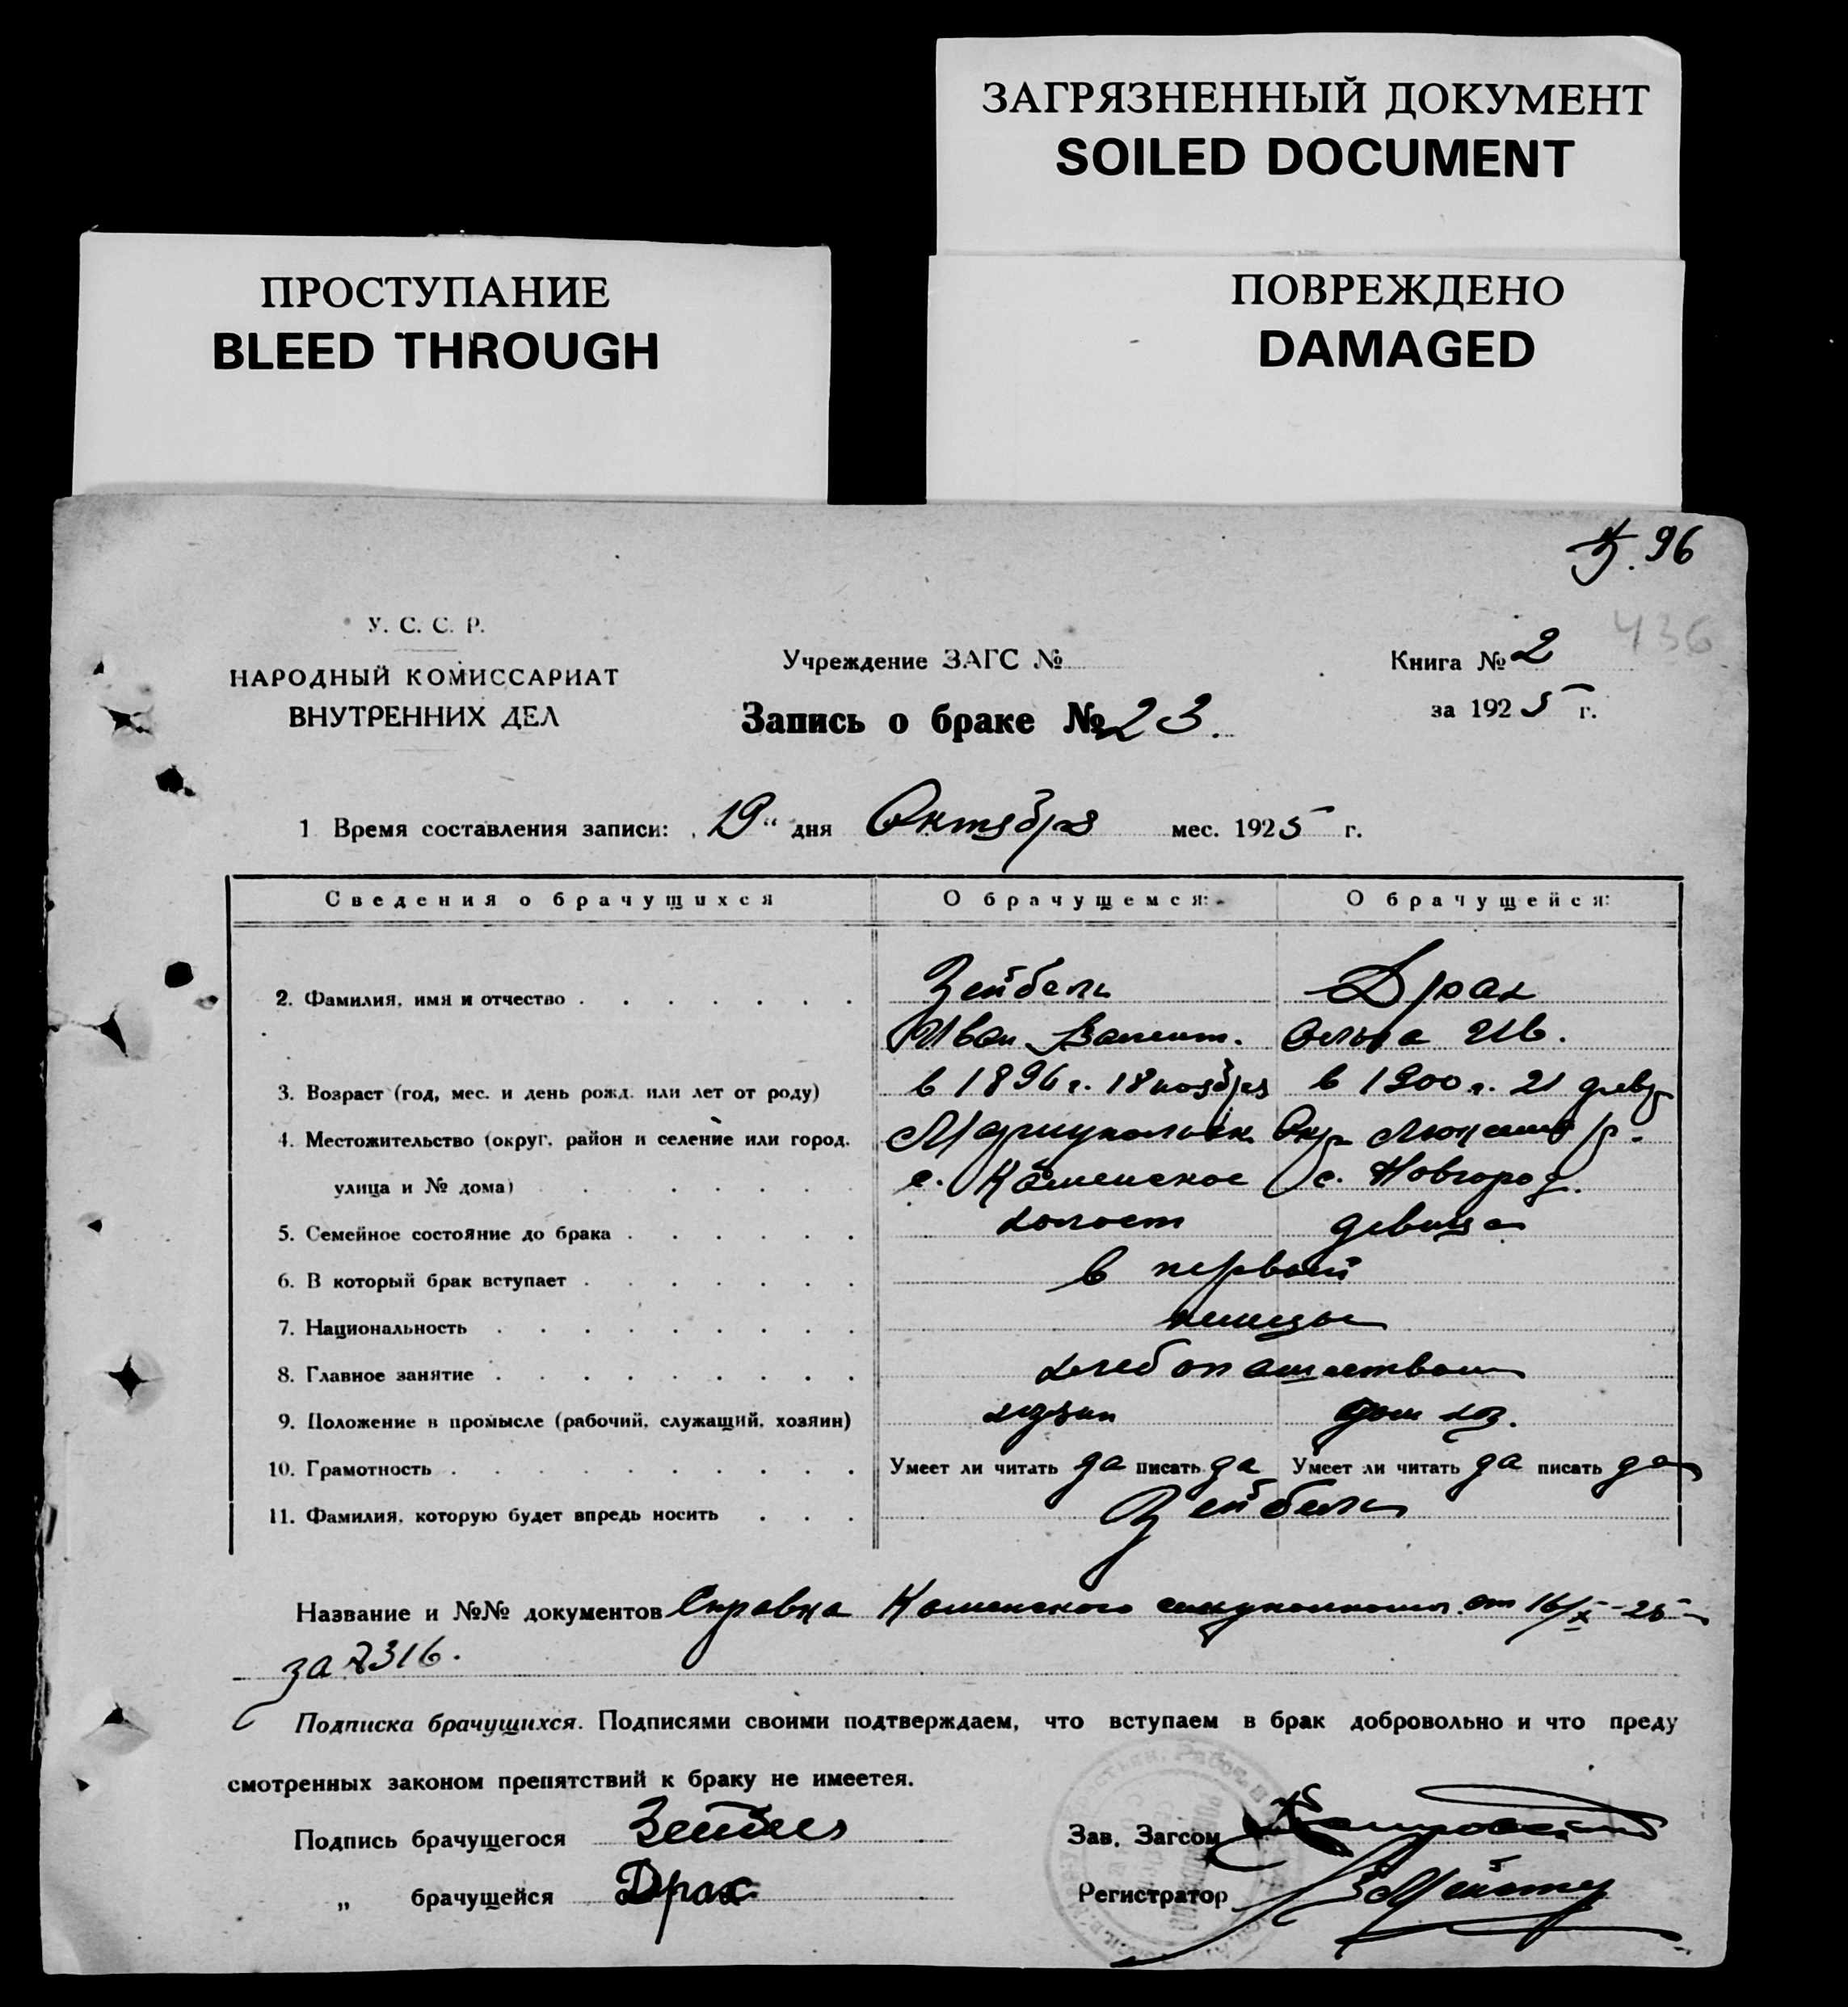 ЗАГРЯЗНЕННЫЙ ДОКУМЕНТ
SOILED DOCUMENT
ПРОСТУПАНИЕ
BLEED THROUGH
ПОВРЕЖДЕНО
DAMAGED
96
436
У. С. С. Р.
НАРОДНЫЙ КОМИССАРИАТ
ВНУТРЕННИХ ДЕЛ
Учреждение ЗАГС №
Запись о браке № 23.
Книга № 2
за 1925 г.
1 Время составления записи: „19" дня Октября мес. 1925 г.
Сведения о брачущихся О брачущемся: О брачущейся:
2. Фамилия, имя и отчество Зейбель Драх
Иван Валент. Ольга Ив.
3. Возраст (год, мес. и день рожд. или лет от роду) в 1896 г. 18 ноября в 1900 г. 21 февр
4. Местожительство (округ, район и селение или город, Мариупольск. Окр. Люксемб р.
улица и № дома) с. Каменское с. Новгород.
5. Семейное состояние до брака холост девица
6. В который брак вступает в первый
7. Национальность немцы
8. Главное занятие хлебопашеством
9. Положение в промысле (рабочий, служащий, хозяин) хозяин дом хоз.
10. Грамотность Умеет ли читать да писать да Умеет ли читать да писать да
11. Фамилия, которую будет впредь носить Зейбель
Название и №№ документов Справка Каменского от 16/X-25
за 2316.
Подписка брачущихся. Подписями своими подтверждаем, что вступаем в брак добровольно и что преду
смотренных законом препятствий к браку не имеетея.
Подпись брачущегося Зейбел
Зав. Загсом
„ брачущейся Драх
Регистратор